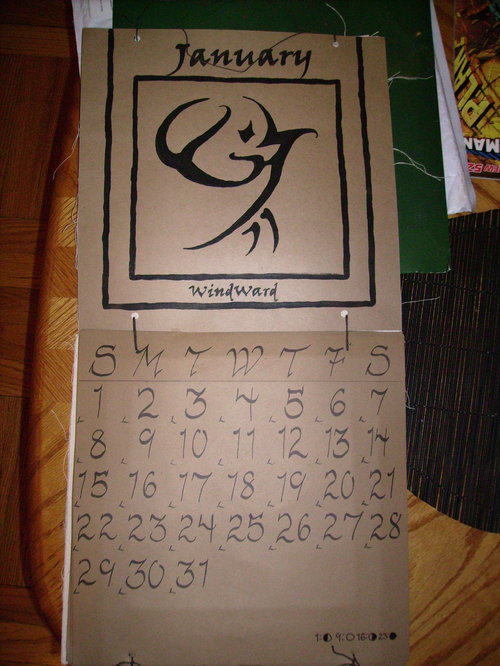 January
WindWard
S M T W T F S
1 2 3 4 5 6 7
8 9 10 11 12 13 14
15 16 17 18 19 20 21
22 23 24 25 26 27 28
29 30 31
1: 9: 16: 23